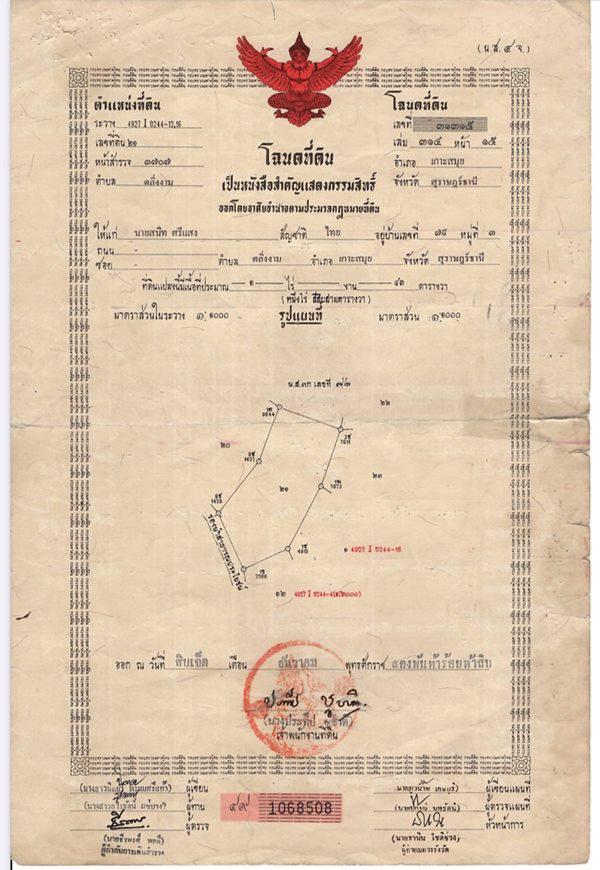 (น.ส.๔ จ.)
ตำแหน่งที่ดิน
ระวาง 4927 I 0244-12,16
เลขที่ดิน ๒๑
หน้าสำรวจ ๓๗๐๗
ตำบล ตลิ่งงาม
โฉนดที่ดิน
เลขที่ ๓๑๓๑๕
เล่ม ๓๑๔ หน้า ๑๕
อำเภอ เกาะสมุย
จังหวัด สุราษฎร์ธานี
โฉนดที่ดิน
เป็นหนังสือสำคัญแสดงกรรมสิทธิ์
ออกโดยอาศัยอำนาจตามประมวลกฎหมายที่ดิน
ให้แก่ นายสนิท ศรีแสง สัญชาติ ไทย อยู่บ้านเลขที่ ๗๙ หมู่ที่ ๓
ถนน -
ซอย - ตำบล ตลิ่งงาม อำเภอ เกาะสมุย จังหวัด สุราษฎร์ธานี
ที่ดินแปลงนี้มีเนื้อที่ประมาณ -๑- ไร่ - งาน -๔๓ ตารางวา
(หนึ่งไร่ สี่สิบสามตารางวา)
มาตราส่วนในระวาง ๑:๑๐๐๐ รูปแผนที่ มาตราส่วน ๑:๑๐๐๐
น.ส.๓ก เลขที่ ๗๒
๒๒
๒๐
๒๓
๒๑
7673
4915
7366
รางน้ำสาธารณประโยชน์
๑ 4927 I 0244-16
๑๒ 4927 I 0244-4(๑:๒๐๐๐)
ออก ณ วันที่ สิบเจ็ด เดือน ธันวาคม พุทธศักราช สองพันห้าร้อยห้าสิบ
เจ้าพนักงานที่ดิน
ผู้เขียน
ผู้ทาน
ผู้ตรวจ
ผู้กำกับการเดินสำรวจ
๔๙ 1068508
ผู้เขียนแผนที่
ผู้ตรวจแผนที่
หัวหน้าการ